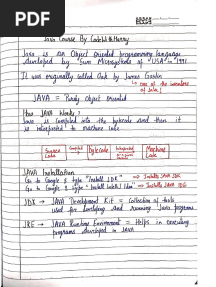 PDF
Java Course By CodeWithHarry
Java is an Object oriented programming language
developed by "Sun Microsystems of "USA" in 1991
It was originally called Oak by James Goslin
→ one of the inventors
of Java!
JAVA = Purely object oriented
How JAVA Works?
Java is compiled into the bytecode and then it
is interpreted to machine code
Source Code
Compiled
Bytecode
Interpreted
Machine Code
JAVA Installation
Go to Google & type "Install JDK" → Installs JAVA JDK
Go to Google & type "Install IntelliJ Idea" → Installs JAVA IDE
JDK → JAVA Development Kit = Collection of tools
used for developing and running Java programs
JRE → JAVA Runtime Environment = Helps in executing
programs developed in JAVA